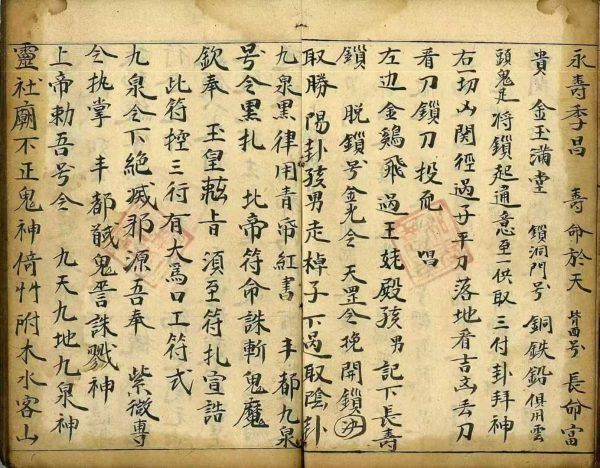 永壽季昌 壽命於天 号 長命富
貴 金玉滿堂 鎖洞門号 銅鉄鉛俱用雲
頭鬼足将鎖起通意至一供取三付卦拜神
右一切凶関徑過子平刀落地看吉凶丢刀
看刀鎖刀投死 唱
左边金鷄飛過王姥殿孩男記下長壽
鎖 脱鎖号金光令 天罡令挽開鎖
取勝 陽卦孩男走棹子下過取陰卦
九泉黑律用青帝紅書 丰都九泉
号令黑扎 北帝符命誅斬鬼魔
欽奉 玉皇旨須至符扎宣誥
此符控三行有大為口工符式
九泉令下絶滅邪源吾奉 紫微專
令执掌 丰都馘鬼誅戮神
上帝勅吾号令 九天九地九泉神
靈社廟不正鬼神倚竹附木水客山